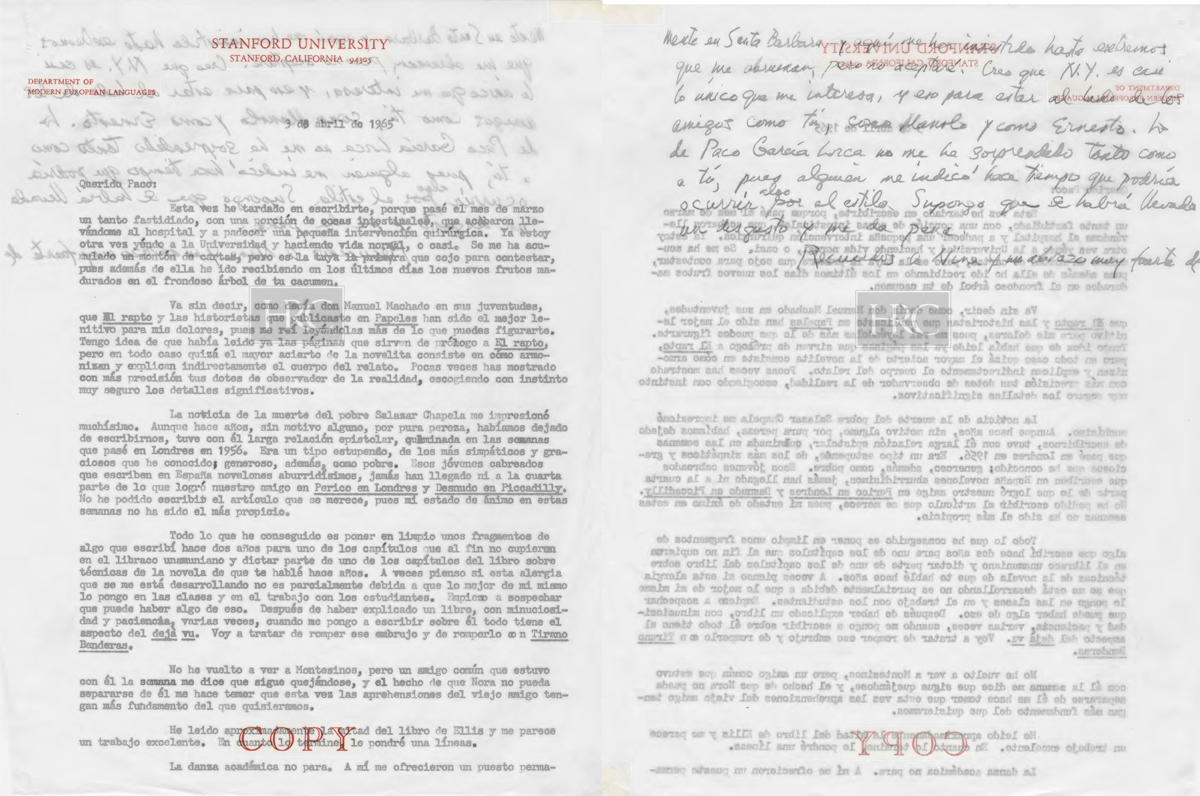 STANFORD UNIVERSITY
STANFORD, CALIFORNIA 94305
DEPARTMENT OF
MODERN EUROPEAN LANGUAGES
3 de abril de 1965
Querido Paco:
Esta vez he tardado en escribirte, porque pasé el mes de marzo
un tanto fastidiado, con una porción de cosas intestinales, que acabaron lle-
vándome al hospital y a padecer una pequeña intervención quirúrgica. Ya estoy
otra vez yendo a la Universidad y haciendo vida normal, o casi. Se me ha acu-
mulado un montón de cartas, pero es la tuya la primera que cojo para contestar,
pues además de ella he ido recibiendo en los últimos días los nuevos frutos ma-
durados en el frondoso árbol de tu cacumen.
Va sin decir, como decía don Manuel Machado en sus juventudes,
que El rapto y las historietas que publicaste en Papeles han sido el mejor le-
nitivo para mis dolores, pues me son leyéndolas más de lo que puedes figurarte.
Tengo idea de que había leído ya las páginas que sirven de prólogo a El rapto,
pero en todo caso quizá el mayor acierto de la novelita consiste en cómo armo-
nizan y explican indirectamente el cuerpo del relato. Pocas veces has mostrado
con más precisión tus dotes de observador de la realidad, escogiendo con instinto
muy seguro los detalles significativos.
La noticia de la muerte del pobre Salazar Chapela me impresionó
muchísimo. Aunque hace años, sin motivo alguno, por pura pereza, habíamos dejado
de escribirnos, tuve con él larga relación epistolar, culminada en las semanas
que pasé en Londres en 1956. Era un tipo estupendo, de los más simpáticos y gra-
ciosos que he conocido; generoso, además, como pobre. Esos jóvenes cabreados
que escriben en España novelones aburridísimos, jamás han llegado ni a la cuarta
parte de lo que logró nuestro amigo en Perico en Londres y Desnudo en Piccadilly.
No he podido escribir el artículo que se merece, pues mi estado de ánimo en estas
semanas no ha sido el más propicio.
Todo lo que he conseguido es poner en limpio unos fragmentos de
algo que escribí hace dos años para uno de los capítulos que al fin no cupieron
en el libraco unamuniano y dictar parte de uno de los capítulos del libro sobre
técnicas de la novela de que te hablé hace años. A veces pienso si esta alergia
que se me está desarrollando no es parcialmente debida a que lo mejor de mi mismo
lo pongo en las clases y en el trabajo con los estudiantes. Empiezo a sospechar
que puede haber algo de eso. Después de haber explicado un libro, con minuciosi-
dad y paciencia, varias veces, cuando me pongo a escribir sobre él todo tiene el
aspecto del dejá vu. Voy a tratar de romper ese embrujo y de romperlo con Tirano
Banderas.
No he vuelto a ver a Montesinos, pero un amigo común que estuvo
con él la semana me dice que sigue quejándose, y el hecho de que Nora no pueda
separarse de él me hace temer que esta vez las aprehensiones del viejo amigo ten-
gan más fundamento del que quisiéramos.
He leído aproximadamente la mitad del libro de Ellis y me parece
un trabajo excelente. En cuanto lo termine, le pondré una líneas.
La danza académica no para. A mí me ofrecieron un puesto perma-
COPY
HRC
mente en Santa Barbara, y aquí me han insistido hasta extremos
que me abruman, pero no aceptaré. Creo que N.Y. es casi
lo único que me interesa, y eso para estar al lado de los
amigos como tú, como Manolo y como Ernesto. Lo
de Paco García Lorca no me ha sorprendido tanto como
a tú, pues alguien me indicó hace tiempo que podría
ocurrir algo por el estilo. Supongo que se habrá llevado
un disgusto y me da pena.
Recuerdos a Nina y un abrazo muy fuerte de
HRC